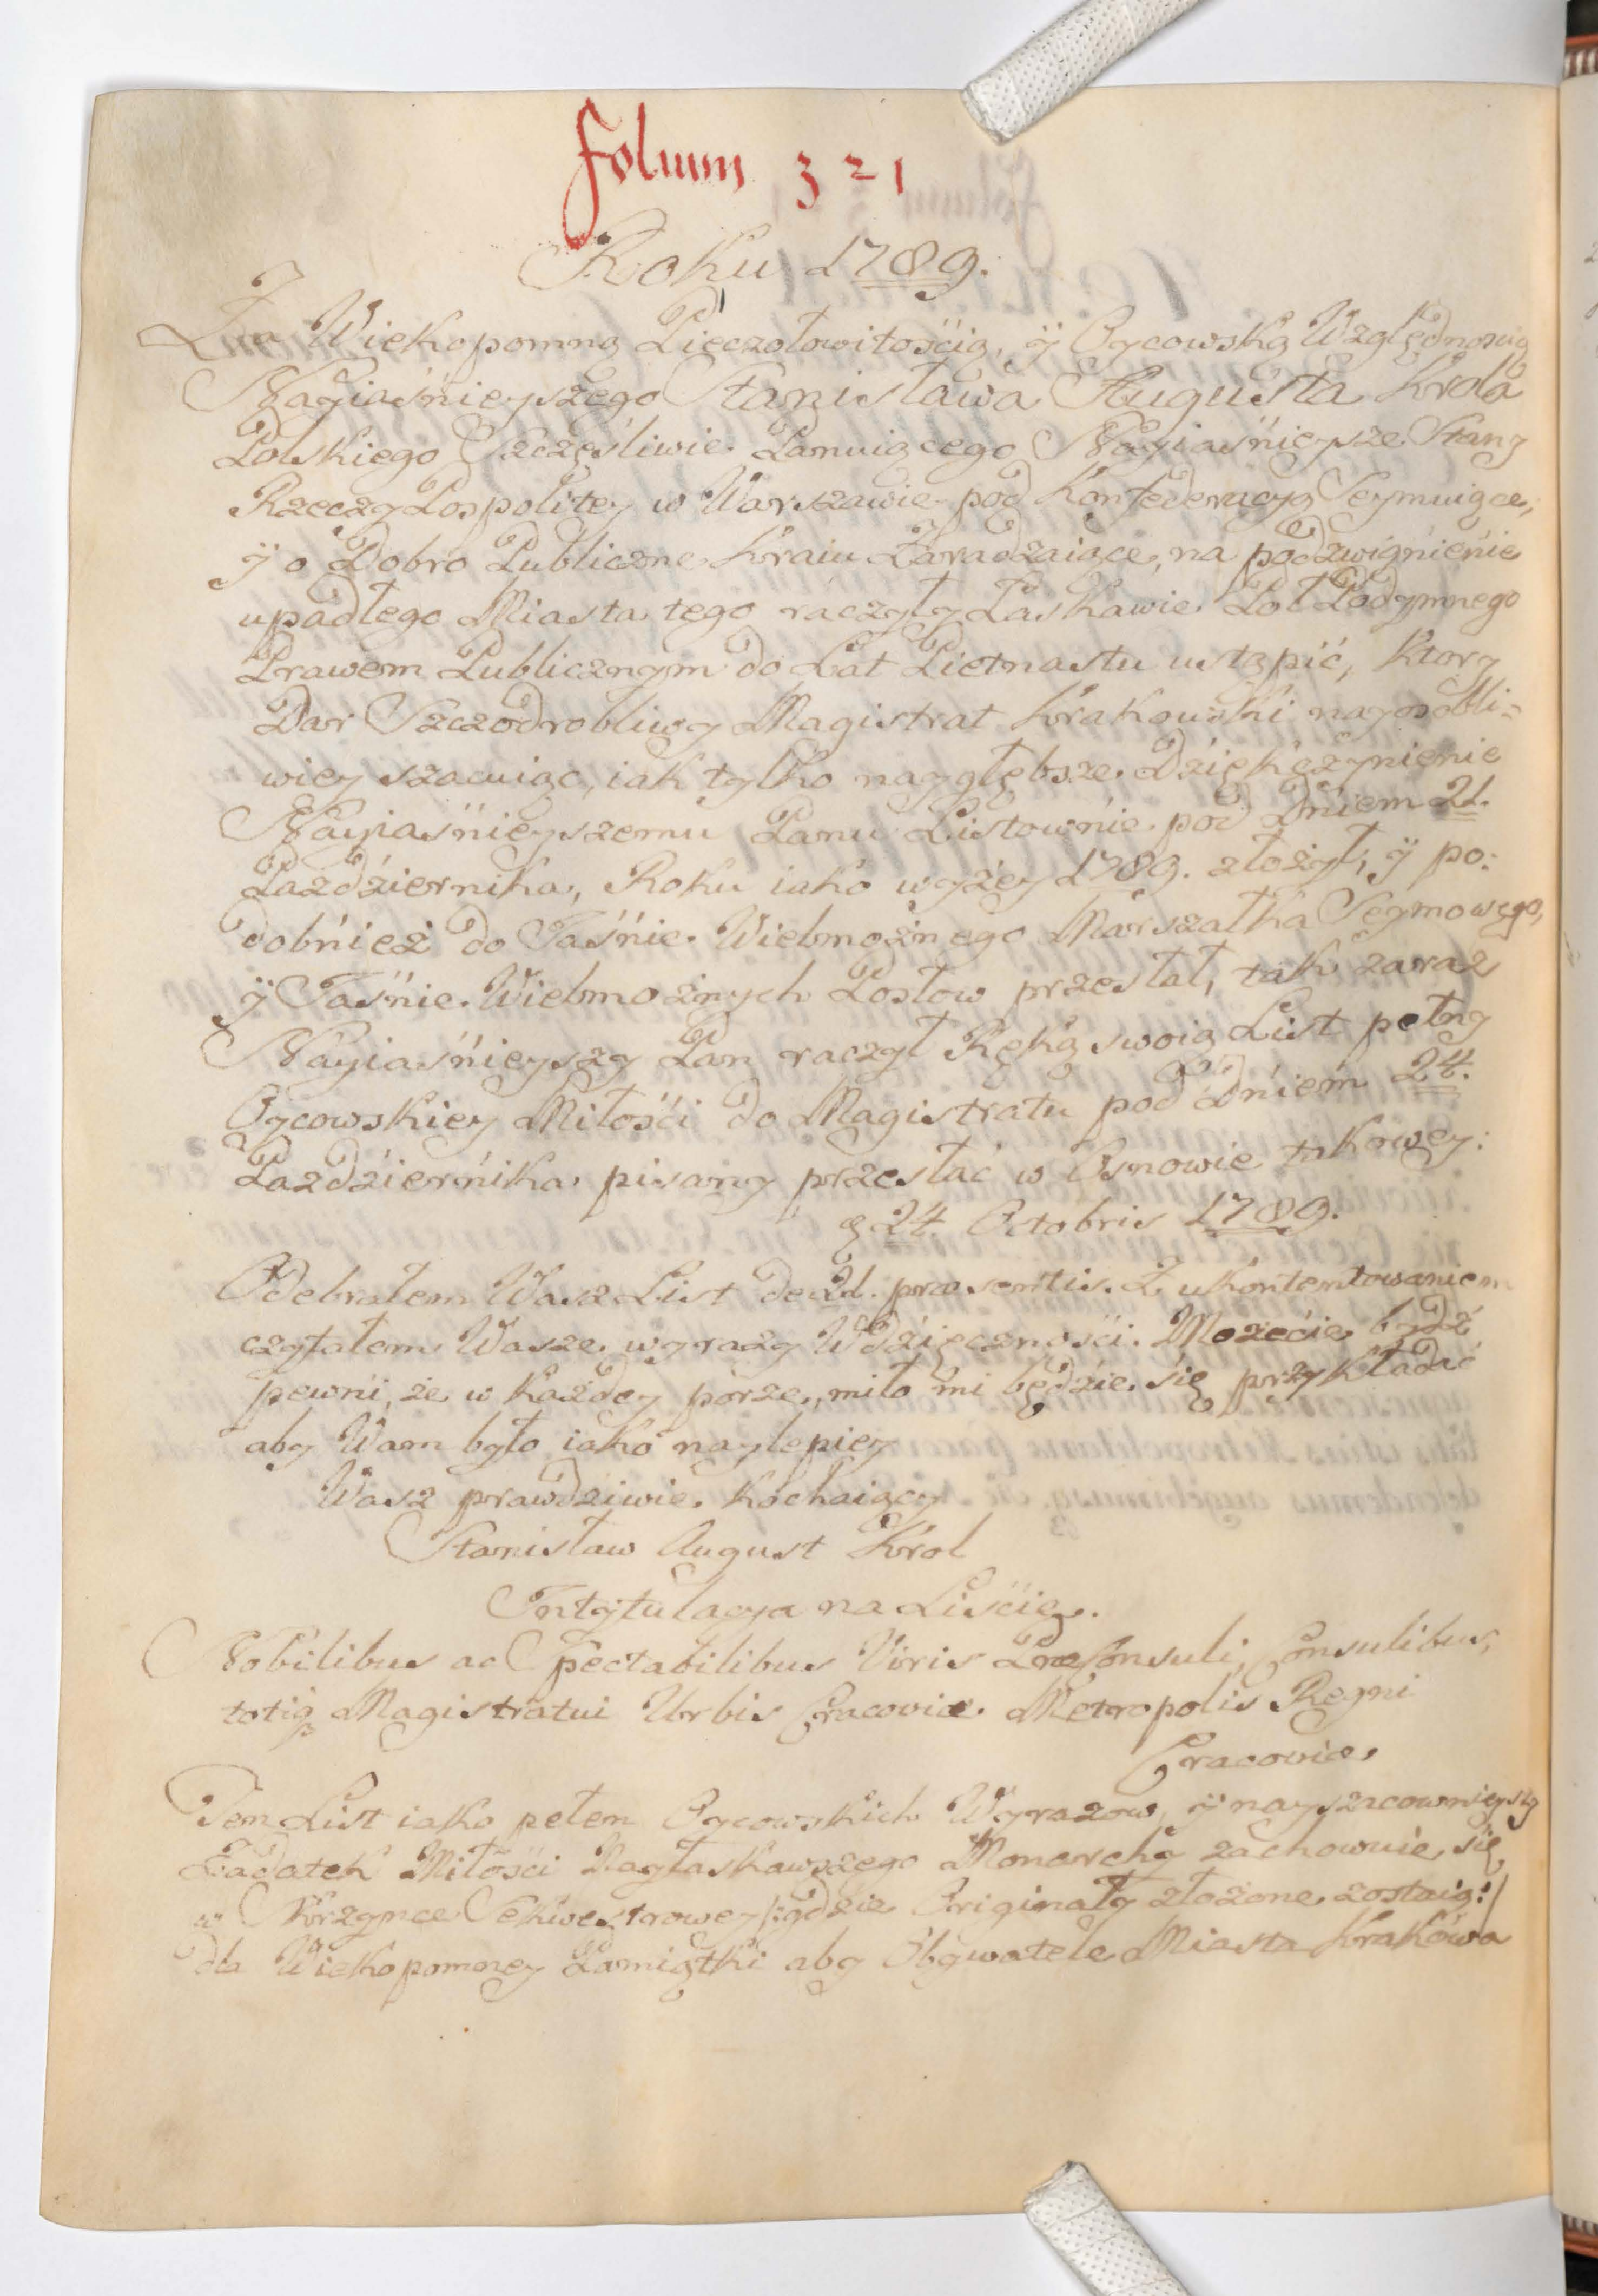 folium 321
Roku 1789.
Za Wiekopomną Pieczołowitością, ÿ Oycowską Względnością
Nayiaśnieyszego Stanisława Augusta Krola
Polskiego Szczęśliwie Panuiącego Nayiaśnieysze Stany
Rzeczy Pospolitey w Warszawie pod Konfederacyą Seymuiące,
ÿ o Dobro Publiczne Kraiu Zaradzaiące, na podzwignienie
upadłego Miasta tego raczyły Łaskawie Poł Podymnego
Prawem Publicznym do Lat Pietnastu ustąpić, Ktory
Dar Szczodrobliwy Magistrat Krakowski nayosobli=
wiey szacuiąc, iak tylko naygłębsze Dziękczynienie
Nayiaśnieyszemu Panu Listownie pod Dniem 21.
Pazdziernika, Roku iako wyżey 1789. złożył, ÿ po:
dobnież do Jaśnie Wielmożnego Marszałka Seymowego,
ÿ Jaśnie Wielmożnych Posłow przesłał, tak zaraz
Nayiaśnieyszy Pan raczył Ręką swoią List pełny
Oycowskiey Miłości do Magistratu pod Dniem 24.
Pazdziernika pisany przesłać w Osnowie takowey:
24. Octobris 1789.
Odebrałem Wasz List de 21. præsentis. Z ukontentowaniem
czytałem Wasze wyrazy Wdzięczności. Możecie bydź
pewni, że w każdey porze, miło mi będzie się przykładać
aby Wam było iako naylepiey
Wasz prawdziwie Kochaiący
Stanisław August Krol
Intytulacya na Liście.
Nobilibus ac Spectabilibus Viris Præconsuli, Consulibus,
totiq Magistratui Urbis Cracoviæ Metropolis Regni
Cracoviæ
Ten List iako pełen Oycowskich Wyrazow, ÿ nayszacownieyszy
Zadatek Miłości Nayłaskawszego Monarchy zachowuie się
w Skrzynce Sekwestrowey /:gdzie Originały złożone zostaią:/
dla Wiekopomney Pamiątki aby Obywatele Miasta Krakowa